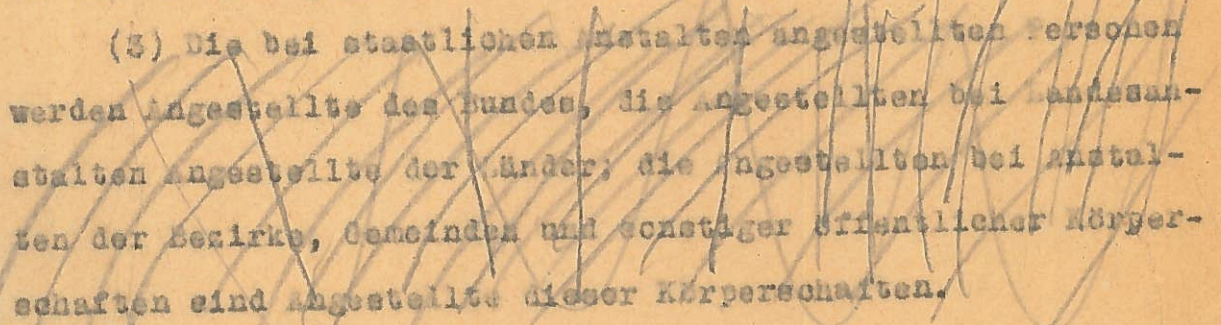 (3) Die bei staatlichen Anstalten angestellten Personen
werden Angestellte des Bundes, die Angestellten bei Landesan-
stalten Angestellte der Länder; die Angestellten bei Anstal-
ten der Bezirke, Gemeinden und sonstiger öffentlicher Körper-
schaften sind Angestellte dieser Körperschaften.